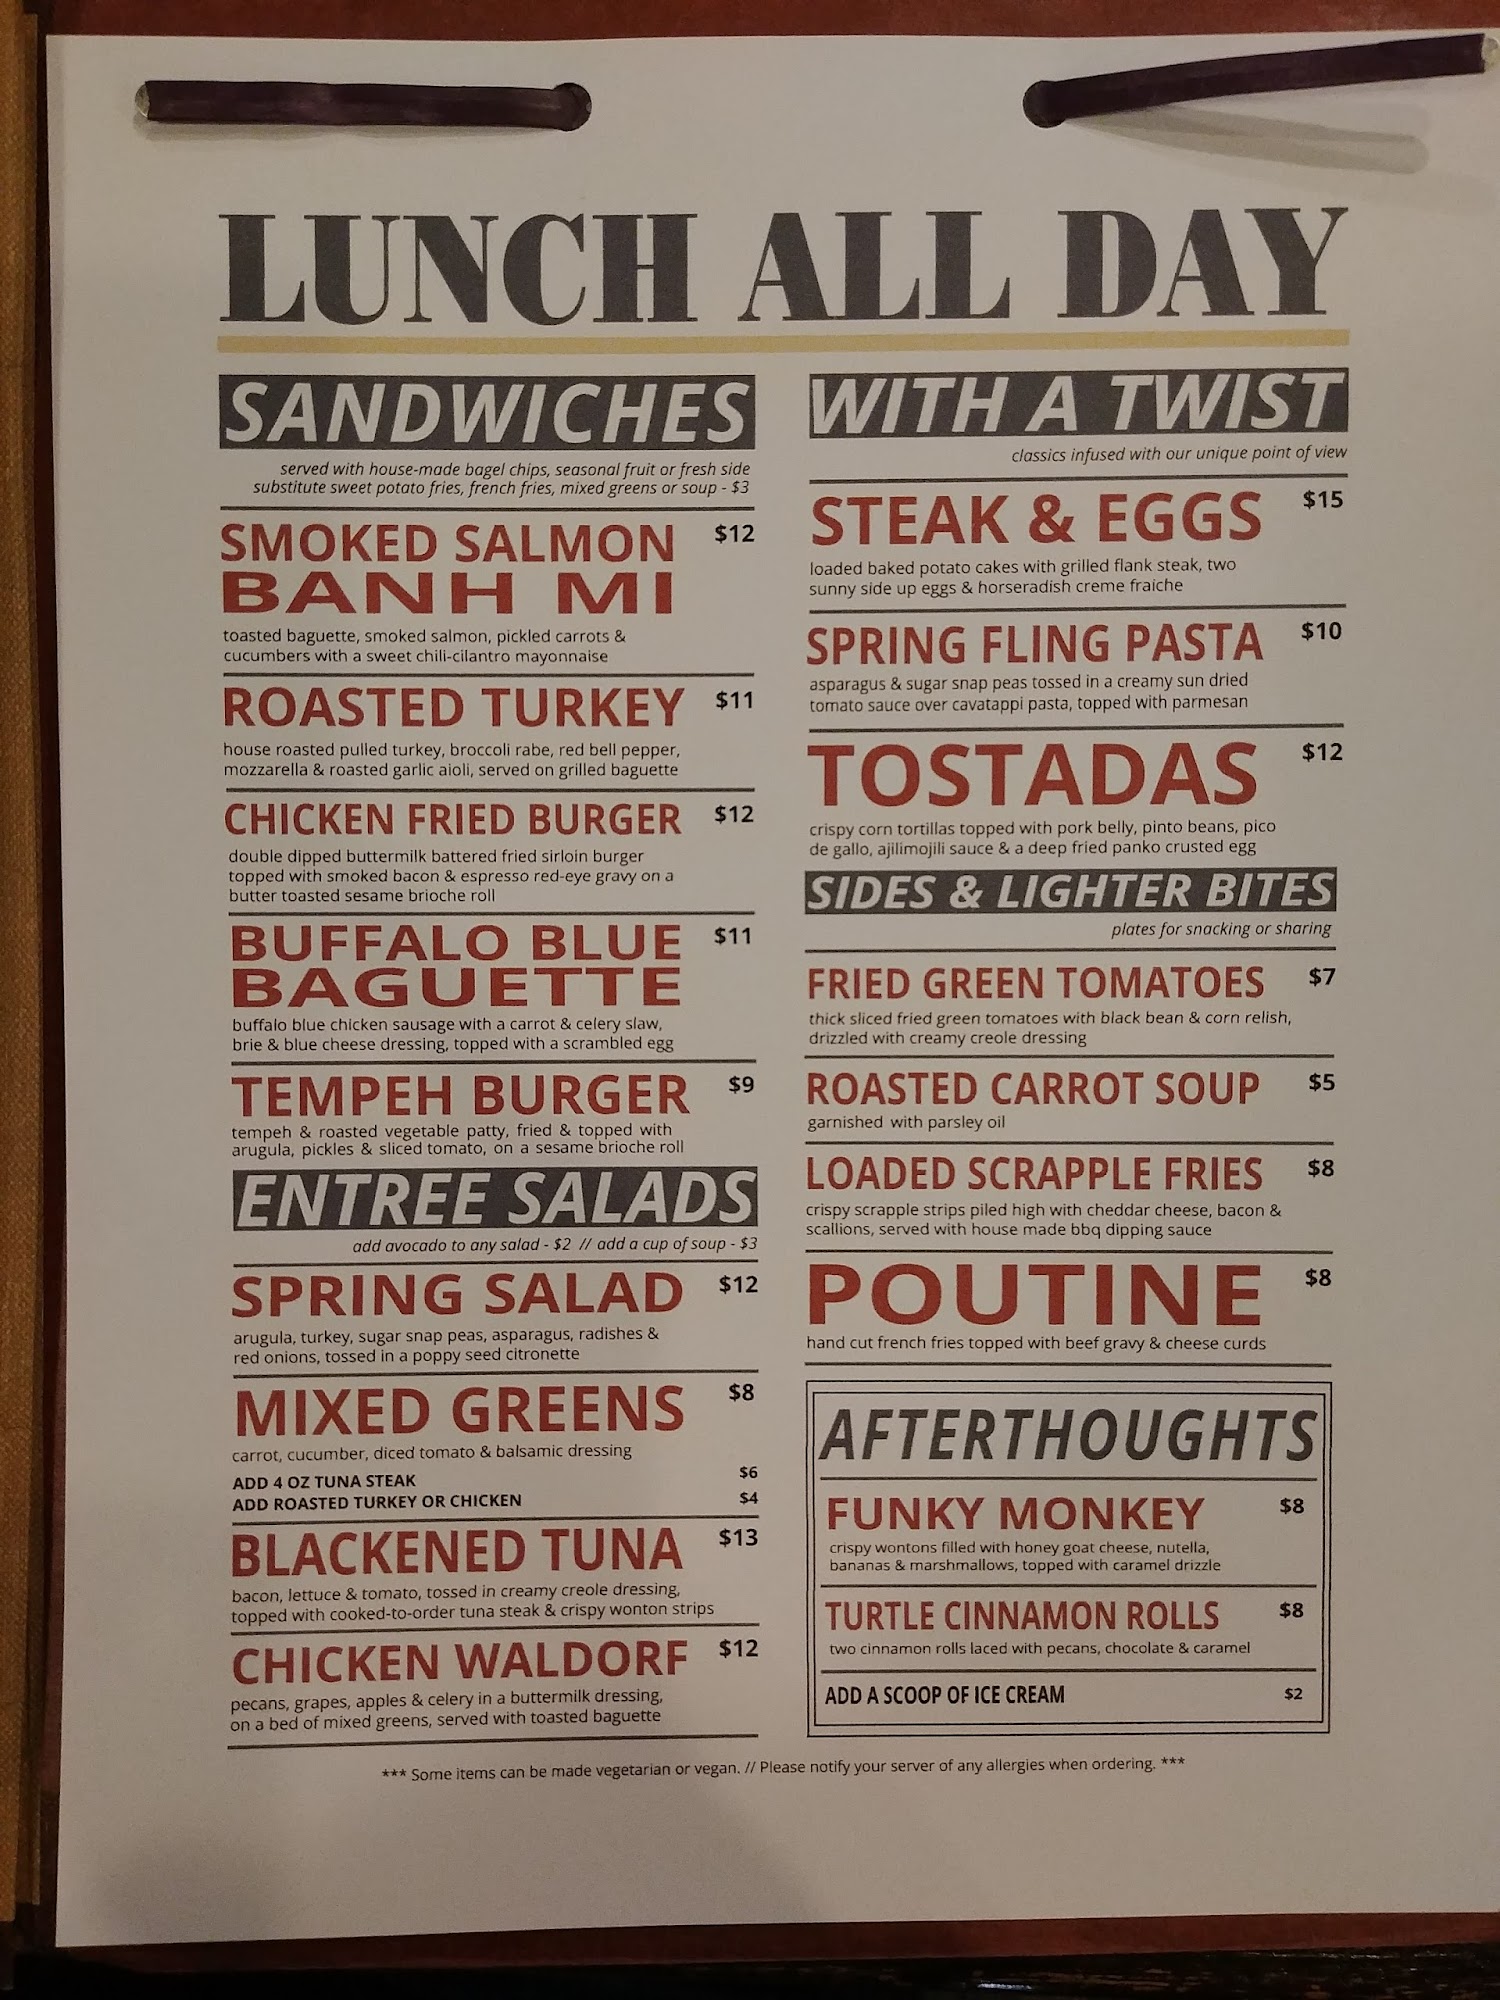 LUNCH ALL DAY
SANDWICHES
served with house-made bagel chips, seasonal fruit or fresh side
substitute sweet potato fries, french fries, mixed greens or soup - $3
SMOKED SALMON $12
BANH MI
toasted baguette, smoked salmon, pickled carrots &
cucumbers with a sweet chili-cilantro mayonnaise
ROASTED TURKEY $11
house roasted pulled turkey, broccoli rabe, red bell pepper,
mozzarella & roasted garlic aioli, served on grilled baguette
CHICKEN FRIED BURGER $12
double dipped buttermilk battered fried sirloin burger
topped with smoked bacon & espresso red-eye gravy on a
butter toasted sesame brioche roll
BUFFALO BLUE $11
BAGUETTE
buffalo blue chicken sausage with a carrot & celery slaw,
brie & blue cheese dressing, topped with a scrambled egg
TEMPEH BURGER $9
tempeh & roasted vegetable patty, fried & topped with
arugula, pickles & sliced tomato, on a sesame brioche roll
ENTREE SALADS
add avocado to any salad - $2 // add a cup of soup - $3
SPRING SALAD $12
arugula, turkey, sugar snap peas, asparagus, radishes &
red onions, tossed in a poppy seed citronette
MIXED GREENS $8
carrot, cucumber, diced tomato & balsamic dressing
ADD 4 OZ TUNA STEAK $6
ADD ROASTED TURKEY OR CHICKEN $4
BLACKENED TUNA $13
bacon, lettuce & tomato, tossed in creamy creole dressing,
topped with cooked-to-order tuna steak & crispy wonton strips
CHICKEN WALDORF $12
pecans, grapes, apples & celery in a buttermilk dressing,
on a bed of mixed greens, served with toasted baguette
WITH A TWIST
classics infused with our unique point of view
STEAK & EGGS $15
loaded baked potato cakes with grilled flank steak, two
sunny side up eggs & horseradish creme fraiche
SPRING FLING PASTA $10
asparagus & sugar snap peas tossed in a creamy sun dried
tomato sauce over cavatappi pasta, topped with parmesan
TOSTADAS $12
crispy corn tortillas topped with pork belly, pinto beans, pico
de gallo, ajilimojili sauce & a deep fried panko crusted egg
SIDES & LIGHTER BITES
plates for snacking or sharing
FRIED GREEN TOMATOES $7
thick sliced fried green tomatoes with black bean & corn relish,
drizzled with creamy creole dressing
ROASTED CARROT SOUP $5
garnished with parsley oil
LOADED SCRAPPLE FRIES $8
crispy scrapple strips piled high with cheddar cheese, bacon &
scallions, served with house made bbq dipping sauce
POUTINE $8
hand cut french fries topped with beef gravy & cheese curds
AFTERTHOUGHTS
FUNKY MONKEY $8
crispy wontons filled with honey goat cheese, nutella,
bananas & marshmallows, topped with caramel drizzle
TURTLE CINNAMON ROLLS $8
two cinnamon rolls laced with pecans, chocolate & caramel
ADD A SCOOP OF ICE CREAM $2
*** Some items can be made vegetarian or vegan. // Please notify your server of any allergies when ordering. ***